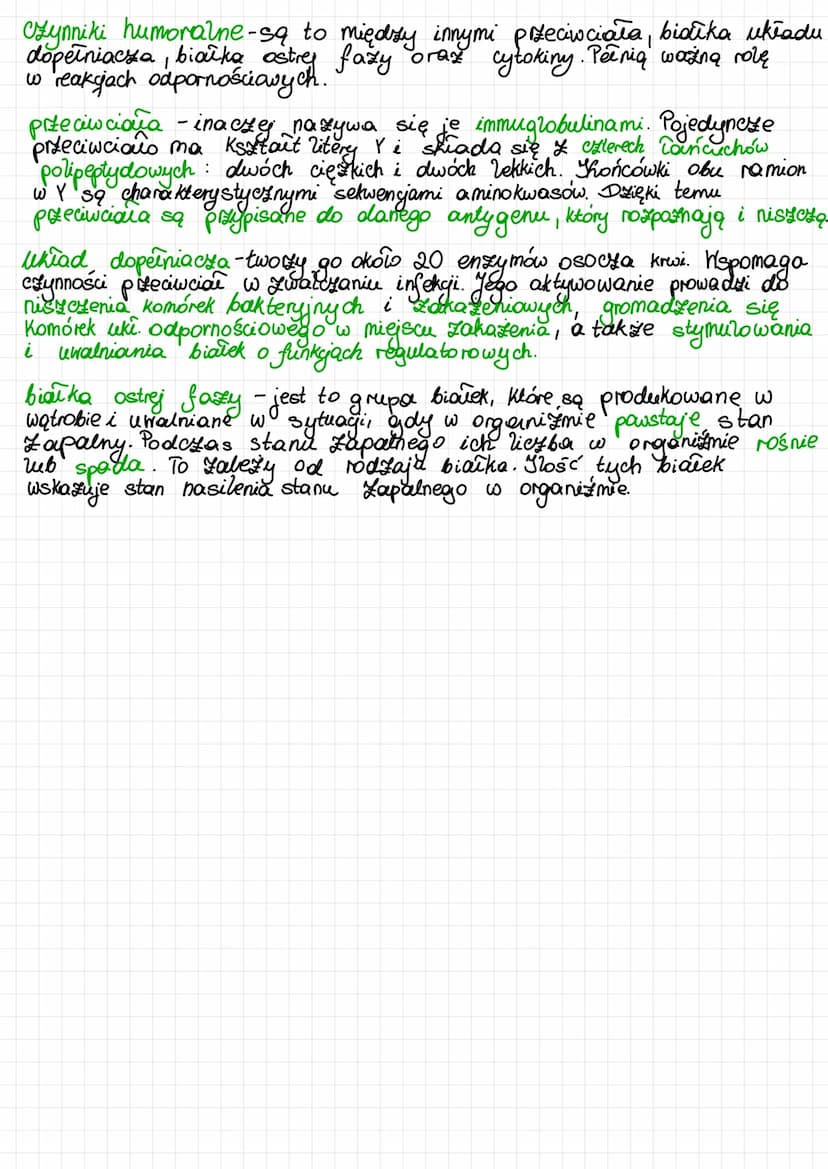 czynniki humoralne - są to między innymi przeciwciała, białka układu
dopełniacza, białka ostrej fazy oraz cytokiny. Pełnią ważną rolę
w reakcjach odpornościowych.
przeciwciała - inaczej nazywa się je immuglobulinami. Pojedyncze
przeciwciało ma kształt litery Y i składa się z czterech łańcuchów
polipeptydowych : dwóch ciężkich i dwóch lekkich. Końcówki obu ramion
w Y są charakterystycznymi sekwencjami aminokwasów. Dzięki temu
przeciwciała są przypisane do danego antygenu, który rozpoznają i niszczą.
układ dopełniacza - tworzy go około 20 enzymów osocza krwi. Wspomaga
czynności przeciwciał w zwalczaniu infekcji. Jego aktywowanie prowadzi do
niszczenia komórek bakteryjnych i zakażeniowych, gromadzenia się
komórek ukł. odpornościowego w miejscu zakażenia, a także stymulowania
i uwalniania białek o funkcjach regulatorowych.
białka ostrej fazy - jest to grupa białek, które są produkowane w
wątrobie i uwalniane w sytuacji, gdy w organizmie powstaje stan
zapalny. Podczas stanu zapalnego ich liczba w organizmie rośnie
lub spada. To zależy od rodzaju białka. Ilość tych białek
wskazuje stan nasilenia stanu zapalnego w organizmie.